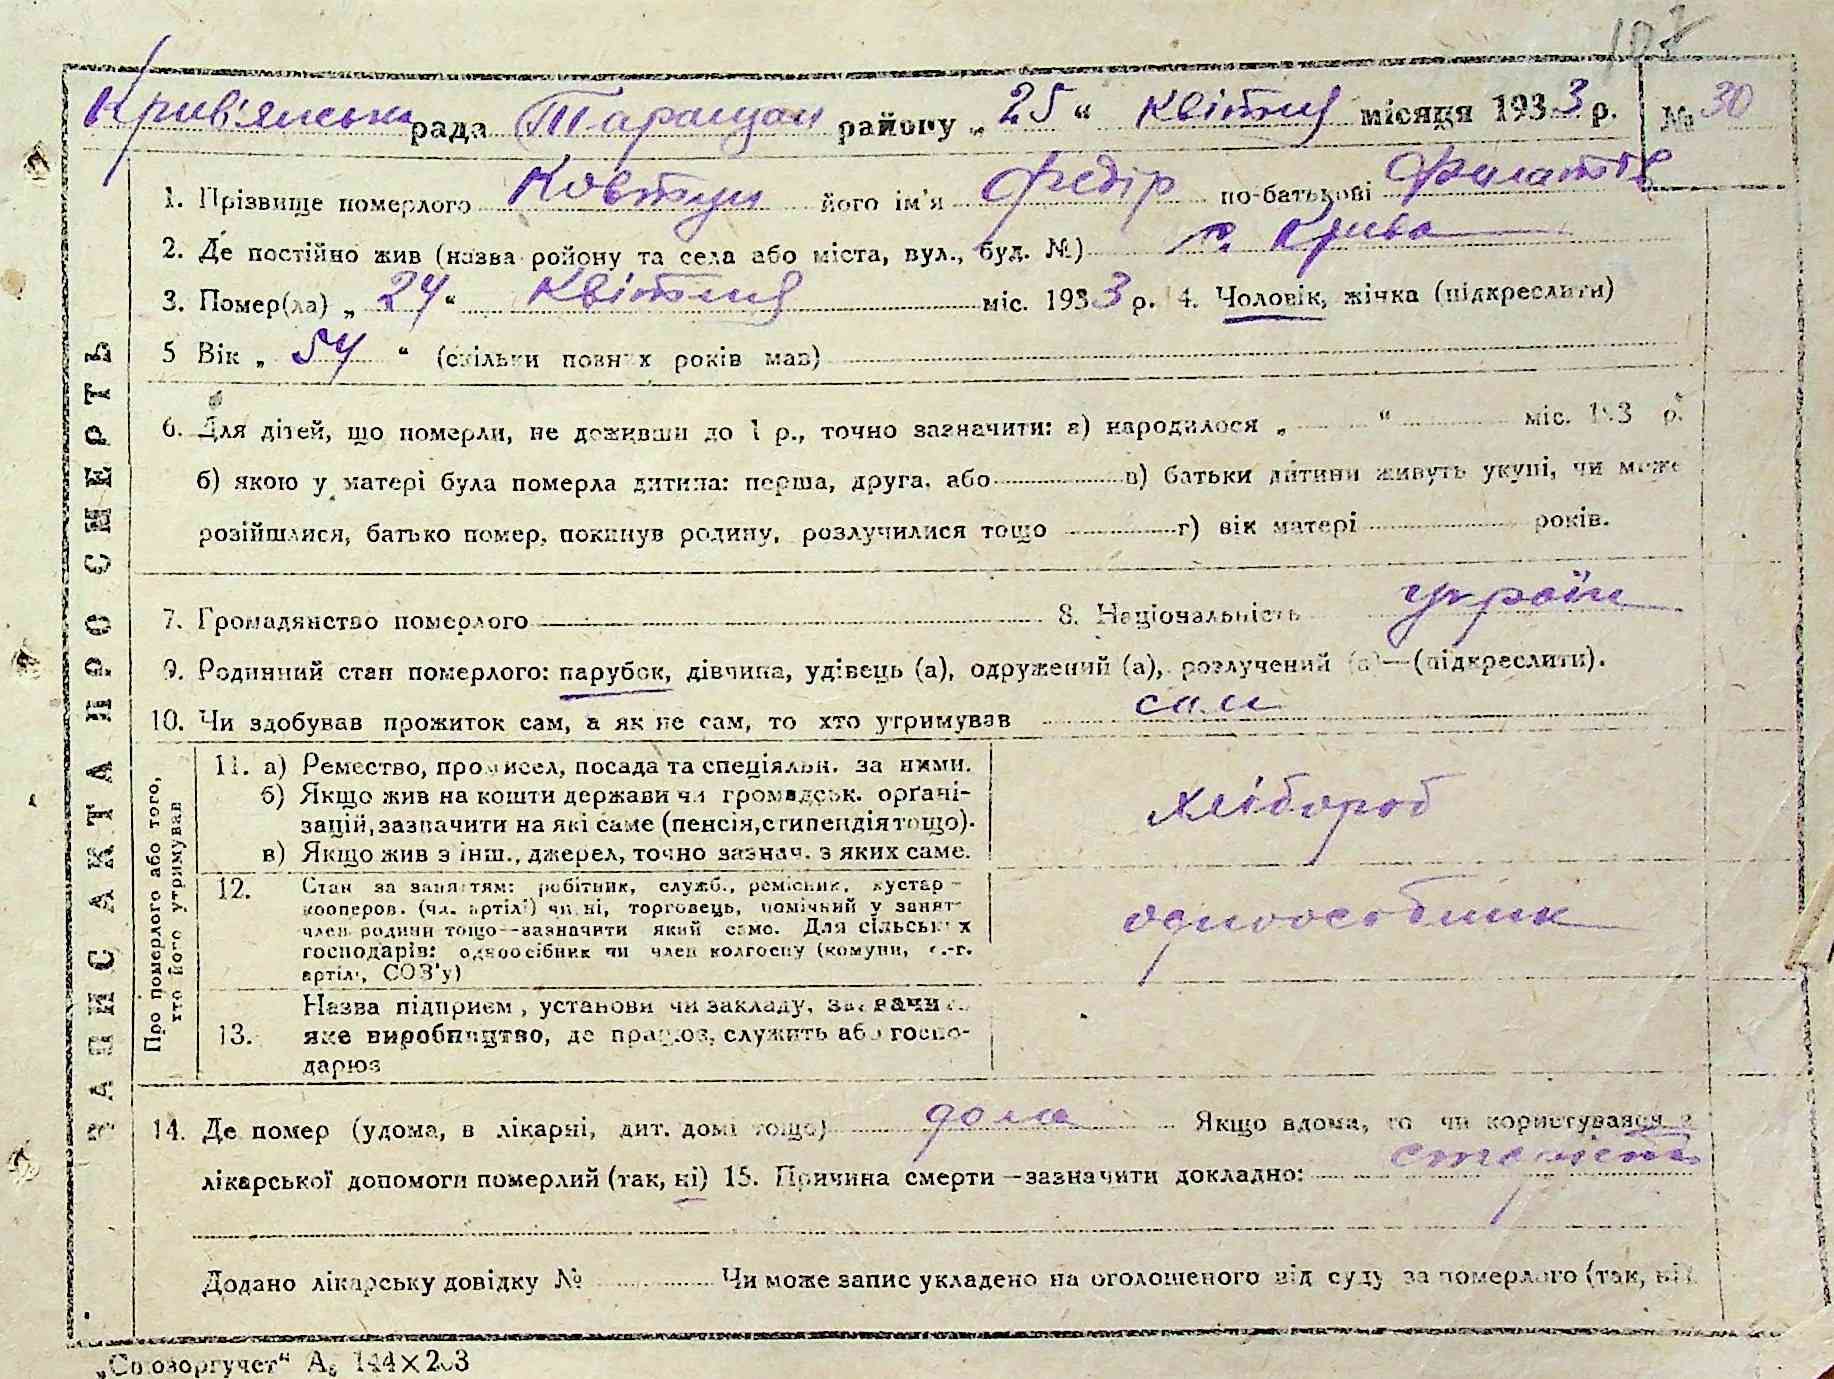 107
Крив'янська рада Таращан району „25“ квітня місяця 1933 р. № 30
ЗАПИС АКТА ПРО СМЕРТЬ
1. Прізвище померлого Ковтун його ім'я Федір по-батькові Филатов
2. Де постійно жив (назва району та села або міста, вул., буд. №) с. Крива
3. Помер(ла) „24“ квітня міс. 1933 р. 4. Чоловік, жінка (підкреслити)
5 Вік „54“ (скільки повних років мав)
6. Для дітей, що померли, не доживши до 1 р., точно зазначити: а) народилося „ “ міс. 193 р.
б) якою у матері була померла дитина: перша, друга, або в) батьки дитини живуть укупі, чи може
розійшлися, батько помер, покинув родину, розлучилися тощо г) вік матері років.
7. Громадянство померлого 8. Національність україн
9. Родинний стан померлого: парубок, дівчина, удівець (а), одружений (а), розлучений (а)—(підкреслити).
10. Чи здобував прожиток сам, а як не сам, то хто утримував сам
Про померлого або того, хто його утримував
11. а) Ремество, промисел, посада та спеціяльн. за ними.
б) Якщо жив на кошти держави чи громадськ. орґані-
зацій, зазначити на які саме (пенсія, стипендія тощо).
в) Якщо жив з інш., джерел, точно зазнач. з яких саме.
хлібороб
12. Стан за заняттям: робітник, служб., ремісник, кустар -
кооперов. (чл. артілі) чи ні, торговець, помічний у занят-
член родини тощо--зазначити який само. Для сільських
господарів: одноосібник чи член колгоспу (комуни, с.-г.
артілі, СОЗ'у)
одноособник
13. Назва підприєм, установи чи закладу, зазначити
яке виробництво, де працює, служить або госпо-
дарює
14. Де помер (удома, в лікарні, дит. домі тощо) дома Якщо вдома, то чи користувався з
лікарської допомоги померлий (так, ні) 15. Причина смерти—зазначити докладно:
Додано лікарську довідку № Чи може запис укладено на оголошеного від суду за померлого (так, ні).
„Союзоргучет“ А₅ 144×203